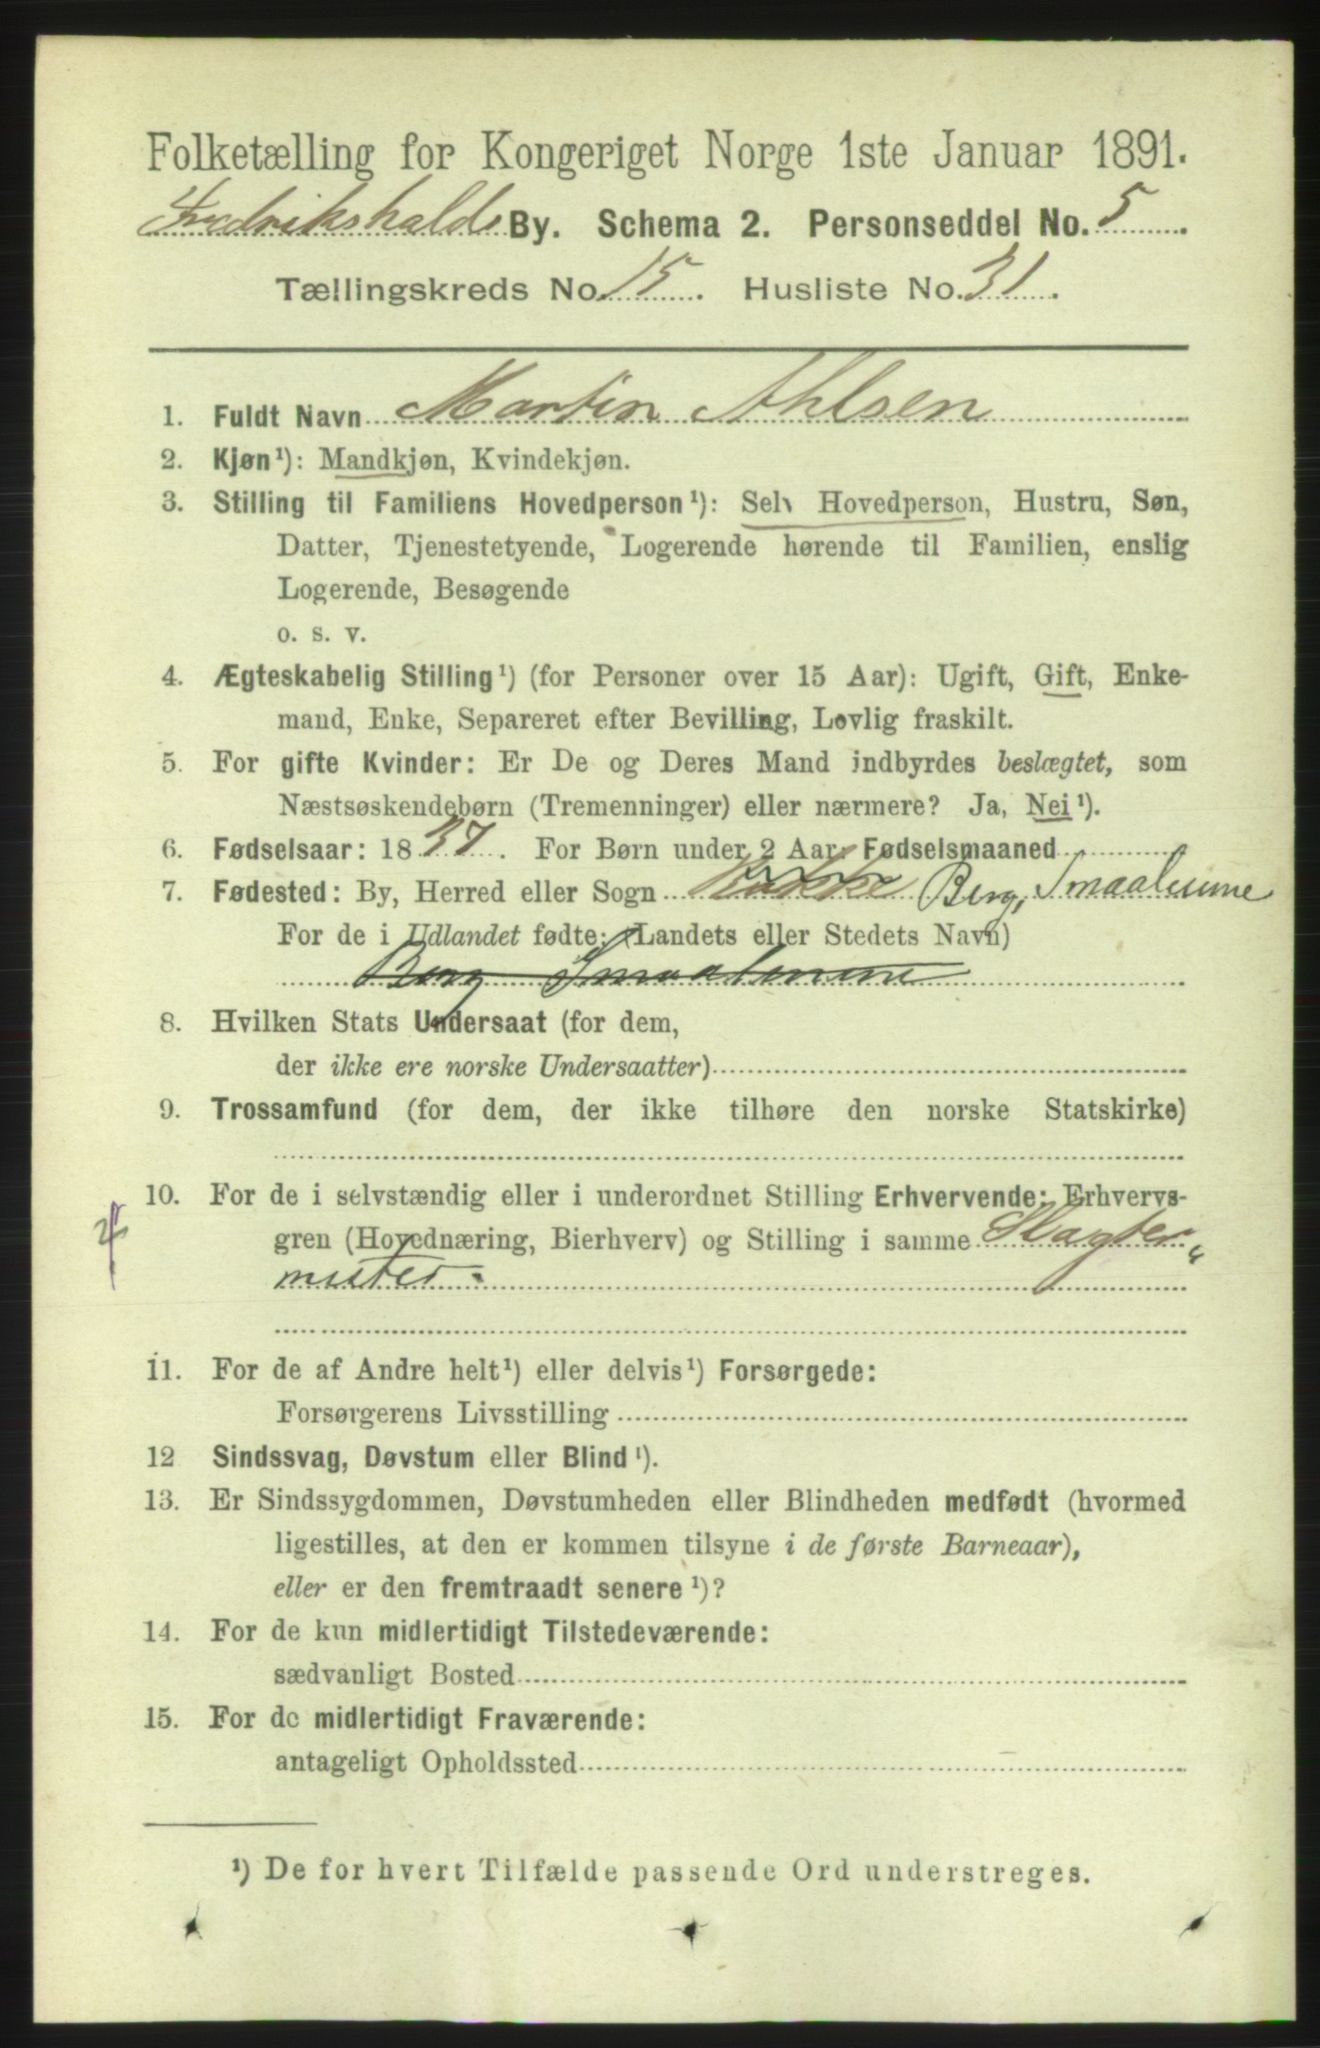 Folketælling for Kongeriget Norge 1ste Januar 1891.
Fredrikshalds By. Schema 2. Personseddel No. 5
Tællingskreds No. 15. Husliste No. 31.
1. Fuldt Navn Martin Ahlsen
2. Kjøn¹): Mandkjøn, Kvindekjøn.
3. Stilling til Familiens Hovedperson¹): Selv Hovedperson, Hustru, Søn,
Datter, Tjenestetyende, Logerende hørende til Familien, enslig
Logerende, Besøgende
o. s. v.
4. Ægteskabelig Stilling¹) (for Personer over 15 Aar): Ugift, Gift, Enke-
mand, Enke, Separeret efter Bevilling, Lovlig fraskilt.
5. For gifte Kvinder: Er De og Deres Mand indbyrdes beslægtet, som
Næstsøskendebørn (Tremenninger) eller nærmere? Ja, Nei¹).
6. Fødselsaar: 1837. For Børn under 2 Aar: Fødselsmaaned
7. Fødested: By, Herred eller Sogn Berg, Smaalenene
For de i Udlandet fødte: (Landets eller Stedets Navn)
Berg Smaalenene
8. Hvilken Stats Undersaat (for dem,
der ikke ere norske Undersaatter)
9. Trossamfund (for dem, der ikke tilhøre den norske Statskirke)
10. For de i selvstændig eller i underordnet Stilling Erhvervende: Erhvervs-
gren (Hovednæring, Bierhverv) og Stilling i samme Slagter„
mester.
11. For de af Andre helt¹) eller delvis¹) Forsørgede:
Forsørgerens Livsstilling
12 Sindssvag, Døvstum eller Blind¹).
13. Er Sindssygdommen, Døvstumheden eller Blindheden medfødt (hvormed
ligestilles, at den er kommen tilsyne i de første Barneaar),
eller er den fremtraadt senere¹)?
14. For de kun midlertidigt Tilstedeværende:
sædvanligt Bosted
15. For de midlertidigt Fraværende:
antageligt Opholdssted
¹) De for hvert Tilfælde passende Ord understreges.